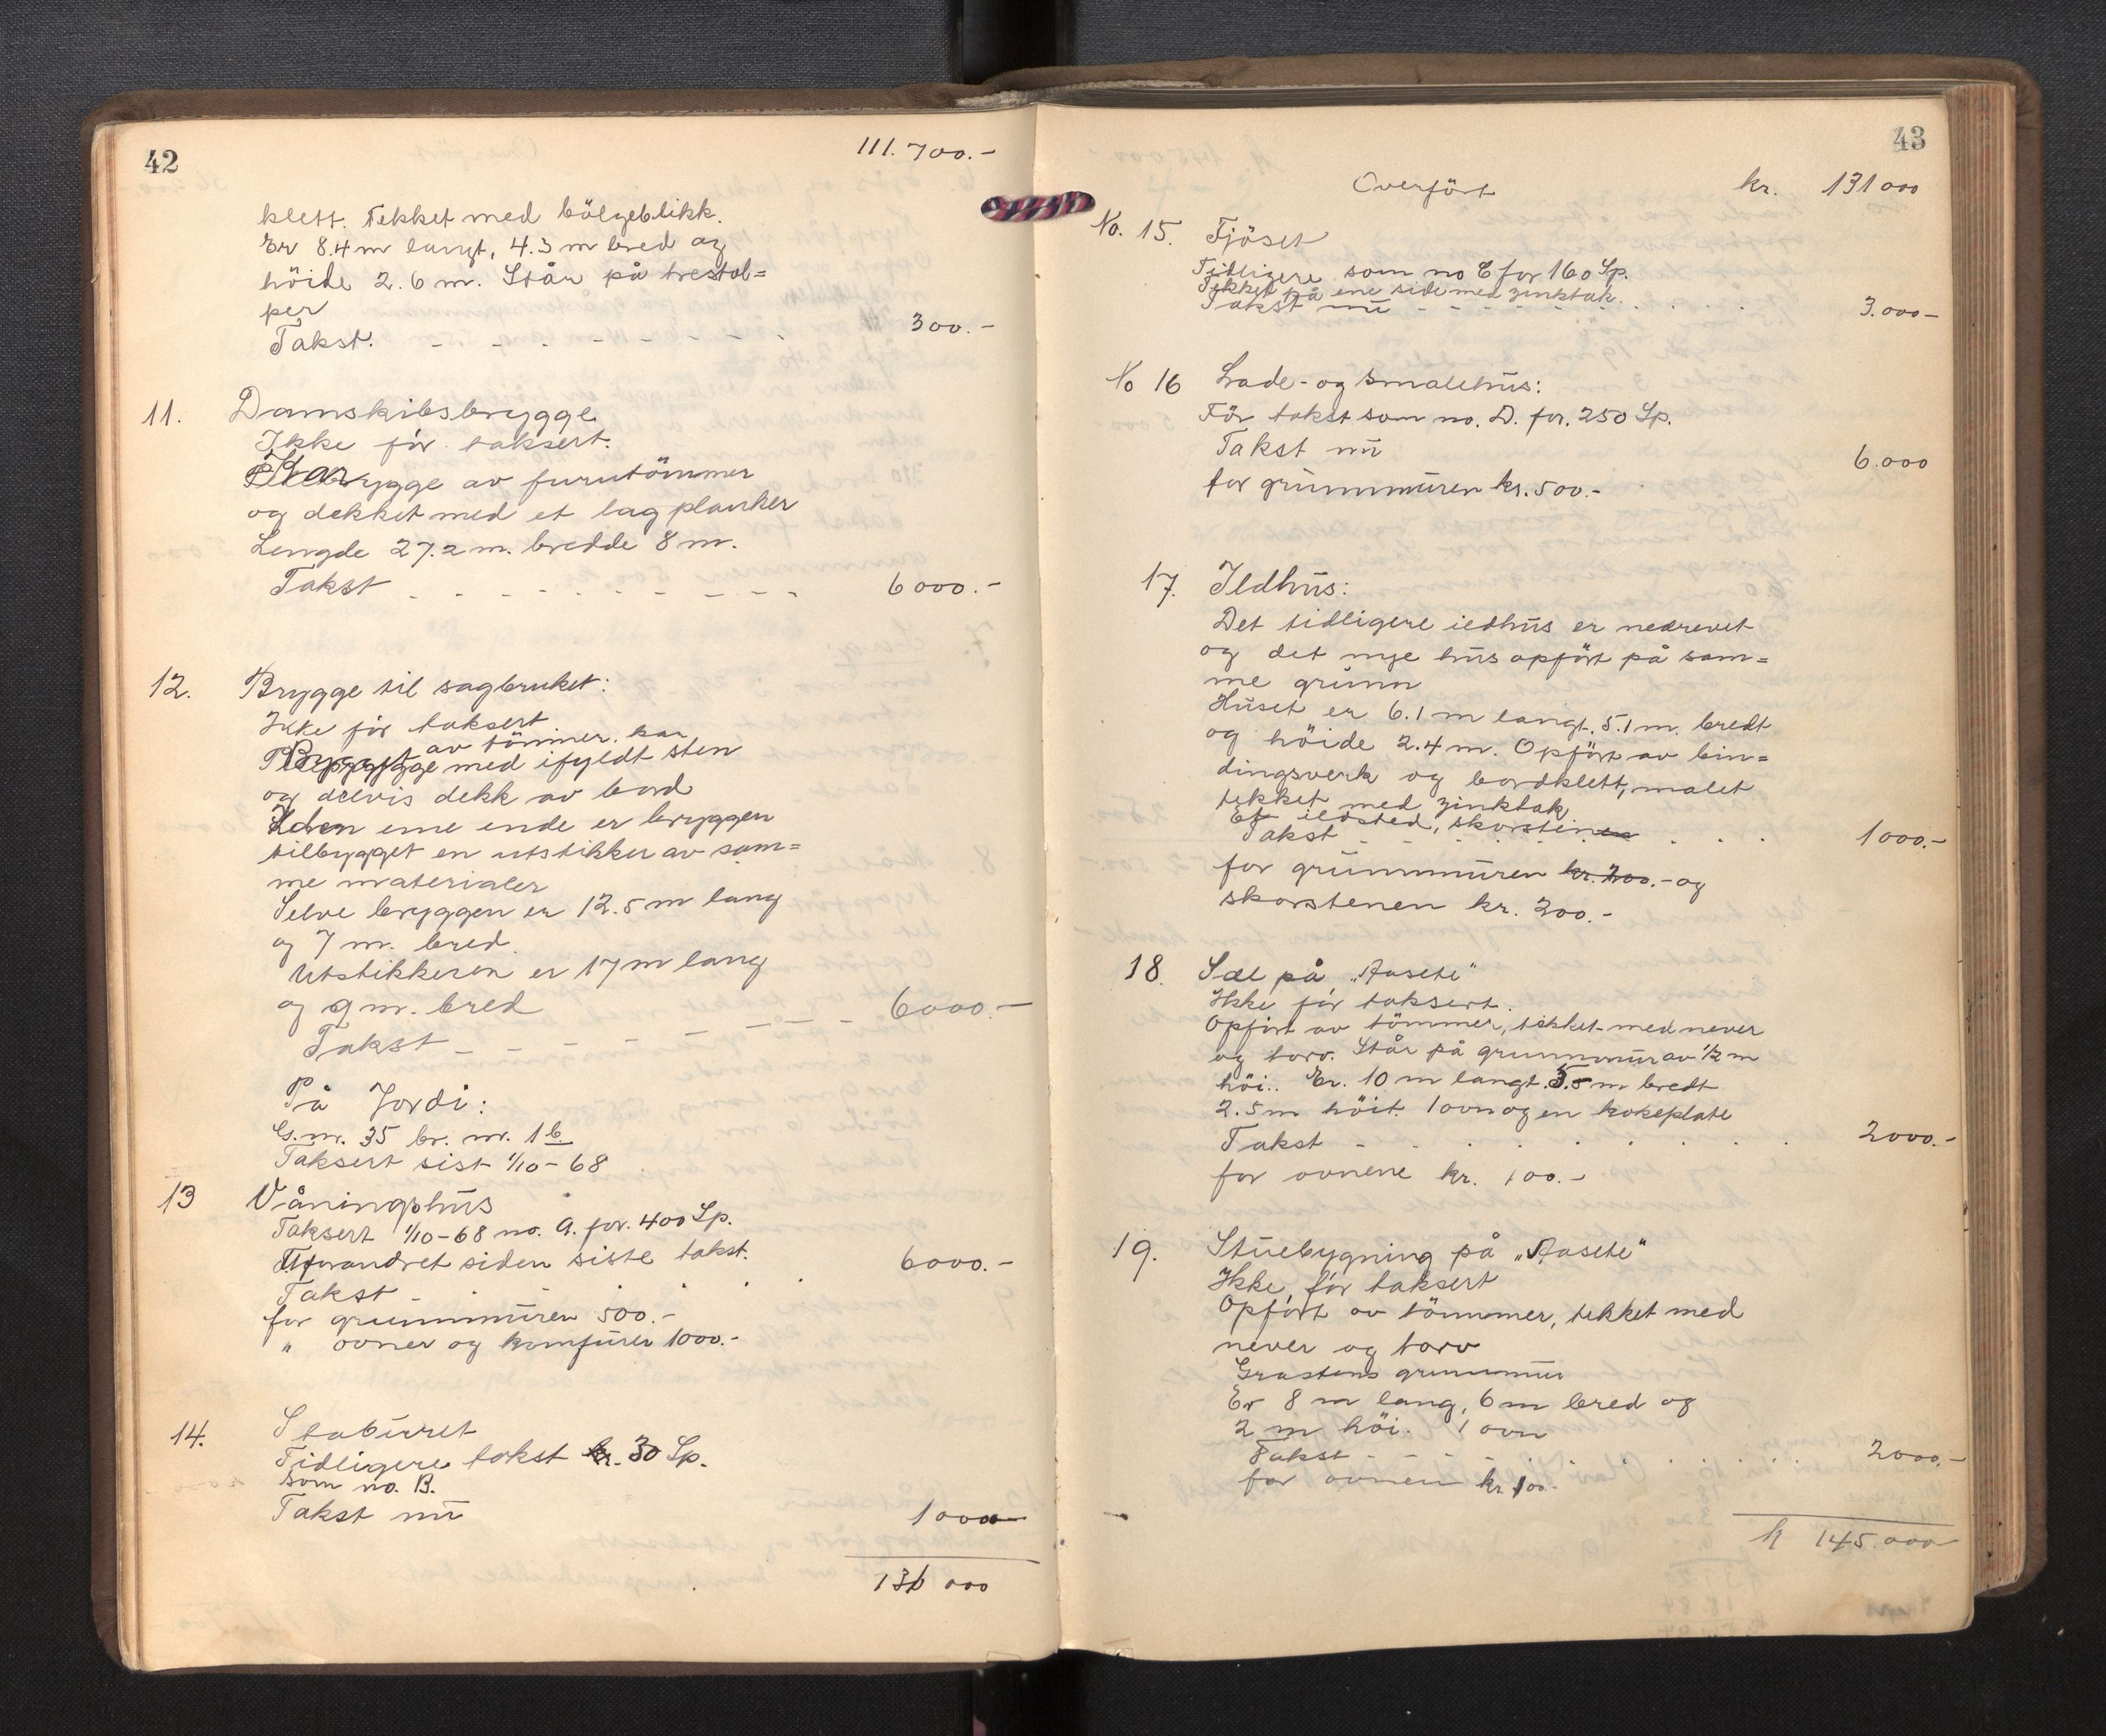 42
111.700.-
klett. Tekket med bölgeblikk.
Er 8.4 m langt, 4.3 m bred og
höide 2.6 m. Står på trestol=
per
Takst. 300.-
11. Damskibsbrygge
Ikke för taksert.
Karbrygge av furutömmer
og dekket med et lag planker
Lengde 27.2 m. bredde 8 m.
Takst 6000.-
12. Brygge til sagbruket:
Ikke för taksert
av tömmer. kar
Brygge med ifyldt sten
og delvis dekk av bord
I den ene ende er bryggen
tilbygget en utstikker av sam=
me materialer
Selve bryggen er 12.5 m lang
og 7 m. bred.
Utstikkeren er 17 m lang
og 9 m. bred 6000.-
Takst
På Jordi:
G.nr. 35 br. nr. 1 b.
Taksert sist 1/10-68
13 Våningshus
Taksert 1/10-68 no. A. for. 400 Sp.
Uforandret siden siste takst. 6000.-
Takst
for grunnmuren 500.-
" ovner og komfurer 1000.-
14. Staburet
Tidligere takst kr. 30 Sp.
som no. B.
Takst nu 1000
131 000
43
Overfört kr. 131 000
No. 15. Fjöset
Tidligere som no C for 160 Sp.
Tekket på ene side med zinktak.
Takst nu 3.000-
No 16 Lade- og smalehus:
För takst som no. D. for. 250 Sp.
Takst nu 6.000
for grunnmuren kr. 500.-
17. Ildhus:
Det tidligere ildhus er nedrevet
og det nye hus opfört på sam=
me grunn
Huset er 6.1 m langt. 5.1 m. bredt
og höide 2.4 m. Opfört av bin=
dingsverk og bordklett, malet
tekket med zinktak
Et ildsted, skorstein
Takst 1000.-
for grunnmuren kr. 200.- og
skorstenen kr. 200.-
18. Sæl på "Aasete"
Ikke för taksert.
Opfört av tömmer, tekket med never
og torv. Står på grunnmur av 1/2 m
höi. Er. 10 m langt. 5.5 m bredt
2.5 m höit. 1 ovn og en kokeplate
Takst 2000.-
for ovnene kr. 100.-
19. Stuebygning på "Aasete"
Ikke för taksert
Opfört av tömmer, tekket med
never og torv
Grastens grunnmur
Er 8 m lang, 6 m bred og
2 m höi. 1 ovn
Takst 2000.-
for ovnen kr 100.-
kr 145.000